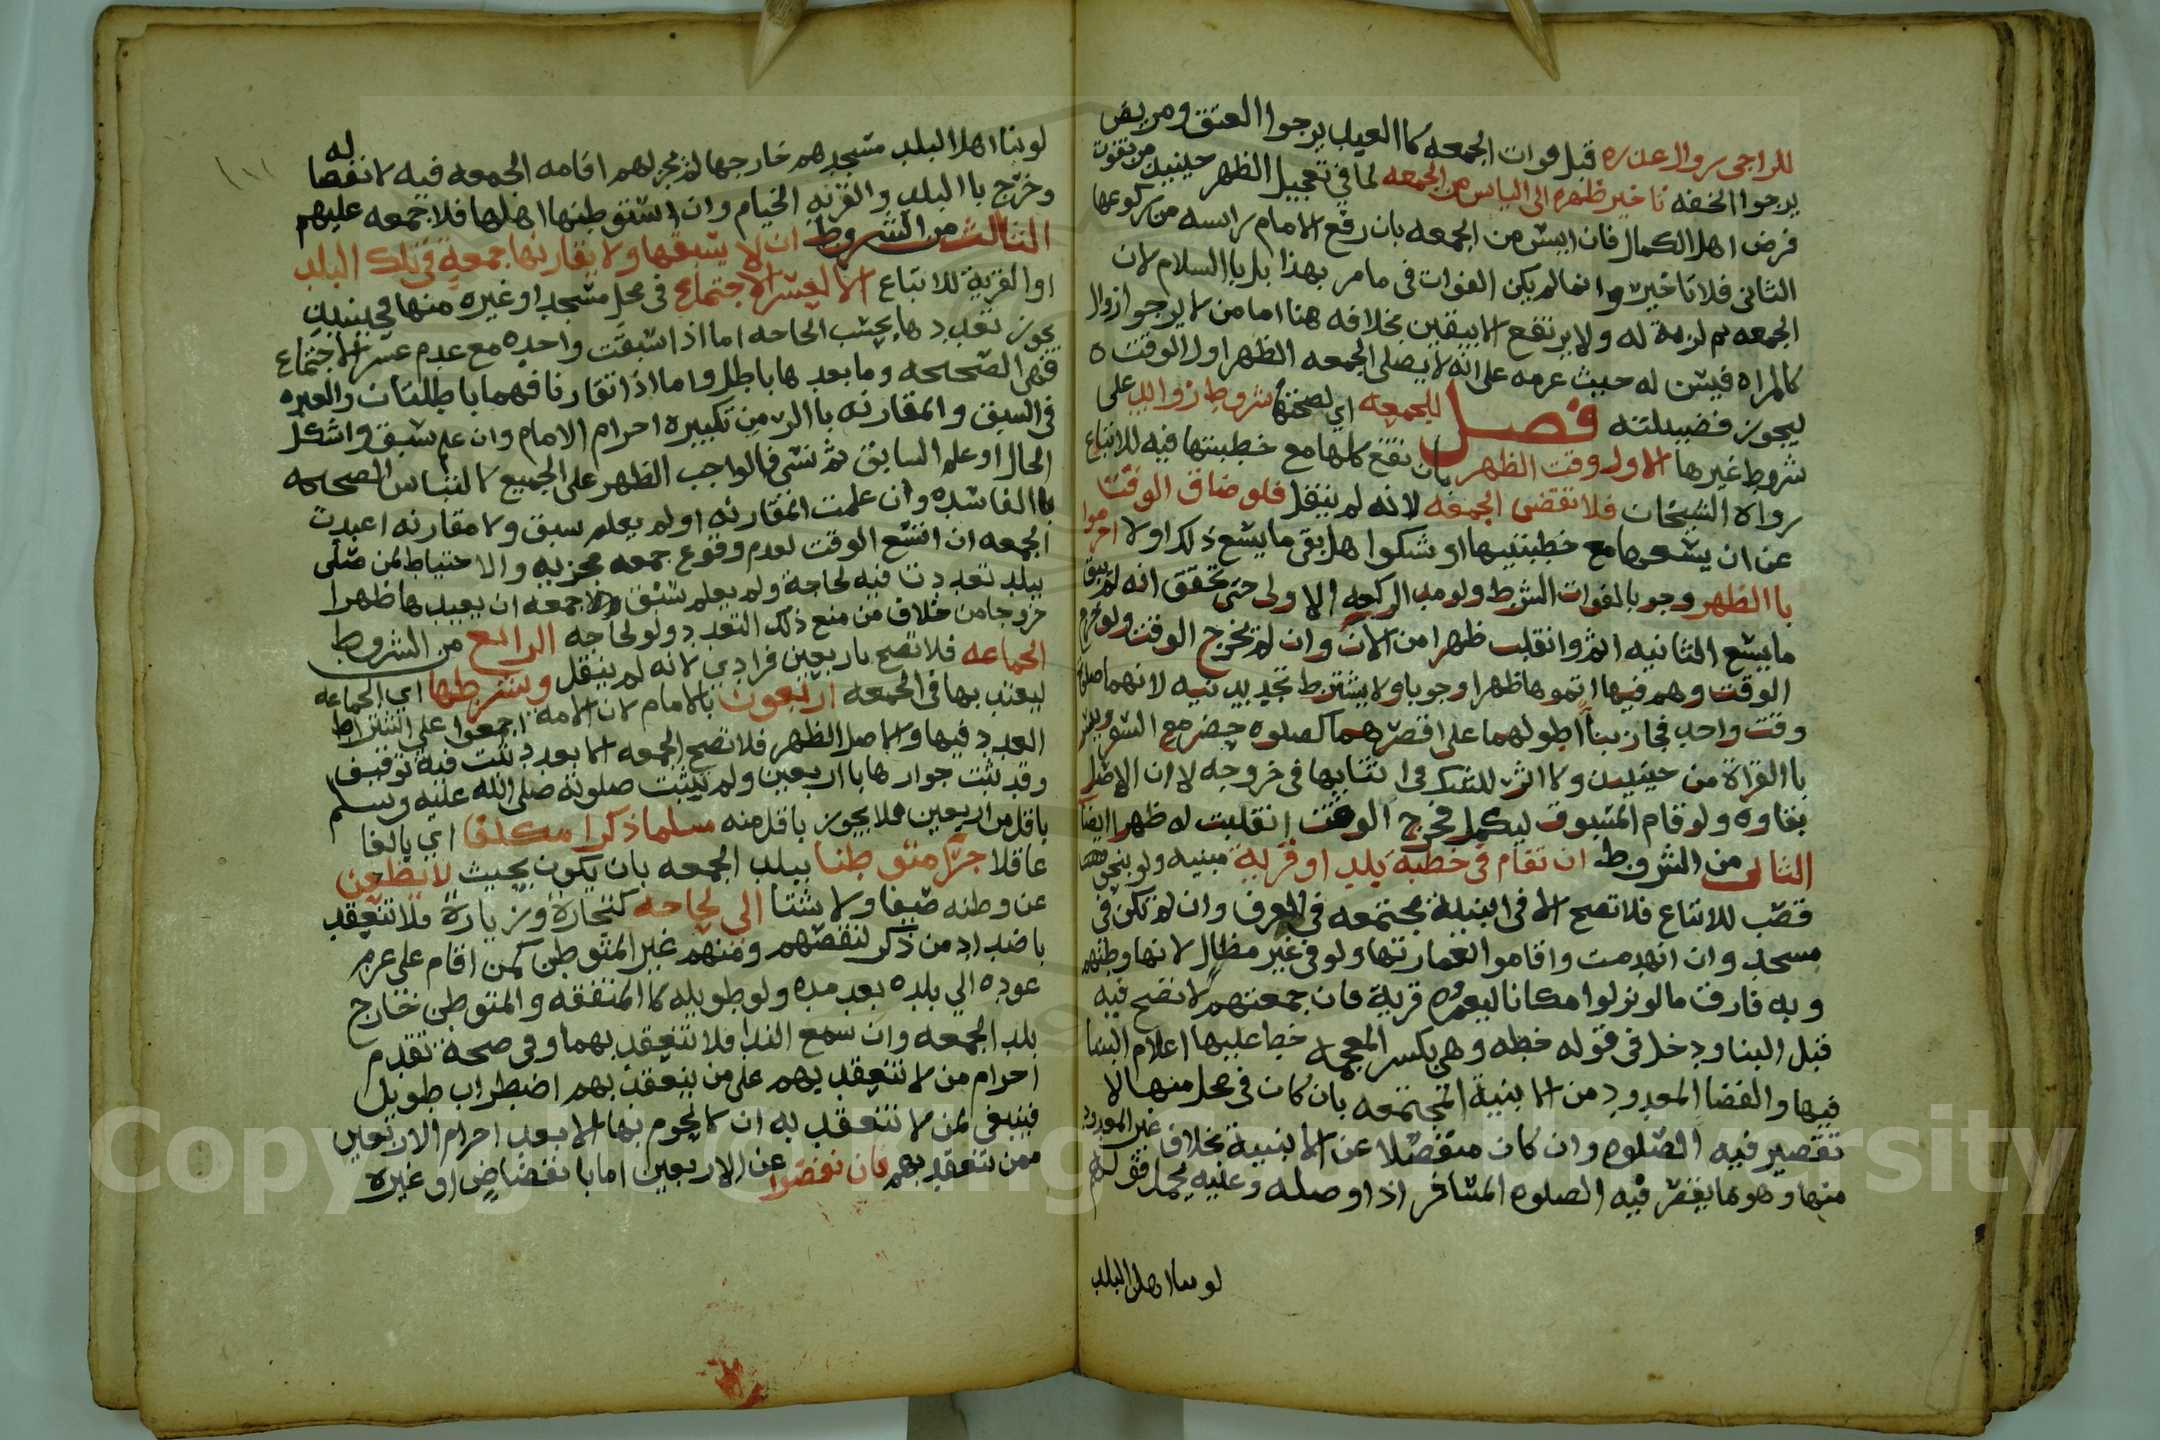 للراجي زوال عذره قبل فوات الجمعه كاالعبد يرجوا العتق ومريض
يرجوا الخفه تاخير ظهره الى الياس من الجمعه لما في تعجيل الظهر حينيذ من تفويت
فرض اهل الكمال فان ايس من الجمعه بان رفع الامام راسه من ركوعها
الثاني فلا تاخير وانما لم يكن الفوات في ما مر بهذا بل باالسلام لان
الجمعه ثم لازمة له ولا يرتفع الا بيقين بخلافه هنا اما من لا يرجوا زوال
كالمراه فيسن له حيث عزمه على انه لا يصلى الجمعه الظهر اول الوقت ه
ليجوز فضيلته فصل للجمعه اي لصحتها شروط زوايد على
شروط غيرها الاول وقت الظهر بان تقع كلها مع خطبتها فيه للاتباع
رواه الشيخان فلا تقضى الجمعه لانه لم ينقل فلو ضاق الوقت
عن ان يسعها مع خطبتيها او شكوا هل بقي ما يسع ذلك اولا احرموا
باالظهر وجوبا لفوات الشرط ولو مد الركعه الاولى حتى تحقق انه لم يبق
ما يسع الثانيه اثم وانقلبت ظهرا من الان وان لم يخرج الوقت ولو خرج
الوقت وهم فيها اتموها ظهرا وجوبا ولا يشترط تجديد نيه لانهما صلاتا
وقت واحد فجاز بنا اطولهما على اقصرهما كصلوه حضر مع السفر ويسر
باالقراة من حينيذ ولا اثر للشك في اثنايها في خروجه لان الاصل
بقاوه ولو قام المسبوق ليكمل فخرج الوقت انقلبت له ظهرا ايضا
الثاني من الشروط ان تقام في خطبه بلد او قرية مبنيه ولو بنحو
قصب للاتباع فلا تصح الا في ابنية مجتمعه في العرف وان لم تكن في
مسجد وان انهدمت واقاموا لعمارتها ولو في غير مظال لانها وطنهم
وبه فارق ما لو نزلوا مكانا ليعمروه قرية فان جمعتهم لا تصح فيه
قبل البنا ودخل في قوله خطه وهي بكسر المعجمه خط عليها اعلام البنا
فيها والفضا المعدود من الابنية المجتمعه بان كان في محل منها لا
تقصر فيه الصلوه وان كان منفصلا عن الابنية بخلاف غير المعدود
منها وهو ما يقصر فيه الصلوه المسافر اذا وصله وعليه يحمل قولهم
لو بنا اهل البلد
لو بنا اهل البلد مسجدهم خارجها لم يجز لهم اقامه الجمعه فيه لانفصاله
وخرج باالبلد والقريه الخيام وان استوطنها اهلها فلا جمعه عليهم
الثالث من الشروط ان لا يسبقها ولا يقارنها جمعة في تلك البلد
او القرية للاتباع الا لعسر الاجتماع في محل مسجد او غيره منها فحينيذ
يجوز تعددها بحسب الحاجه اما اذا سبقت واحده مع عدم عسر الاجتماع
فهي الصحيحه وما بعدها باطل واما اذا تقارنا فهما باطلتان والعبره
في السبق والمقارنه باالر من تكبيرة احرام الامام وان علم سبق واشكل
الحال او علم السابق ثم نسي فالواجب الظهر على الجميع لالتباس الصحيحه
باالفاسده وان علمت المقارنه او لم يعلم سبق ولا مقارنه اعيدت
الجمعه ان اتسع الوقت لعدم وقوع جمعه مجزيه والاحتياط لمن صلى
ببلد تعددت فيه لحاجة ولم يعلم سبق الجمعه ان يعيدها ظهرا
خروجا من خلاف من منع ذلك التعدد ولو لحاجه الرابع من الشروط
الجماعه فلا تصح باربعين فرادي لانه لم ينقل ويشترطها اي الجماعه
ليعتد بها في الجمعه اربعون بالامام لان الامه اجمعوا على اشتراط
العدد فيها والاصل الظهر فلا تصح الجمعه الا بعدد ثبت فيه توقيف
وقد ثبت جوازها باربعين ولم يثبت صلوته صلى الله عليه وسلم
باقل من اربعين فلا يجوز باقل منه مسلما ذكرا مكلفا اي بالغا
عاقلا حرا متوطنا ببلد الجمعه بان يكون بحيث لا يظعن
عن وطنه صيفا ولا شتا الى لحاجه كتجارة وزيارة فلا تنعقد
باضداد من ذكر لنقصهم ومنهم غير المتوطن كمن اقام على عزم
عوده الي بلده بعد مده ولو طويله كاالمتفقه والمتوطن خارج
بلد الجمعه وان سمع الندا فلا تنعقد بهما وفي صحة تقدم
احرام من لا تنعقد بهم على من ينعقد بهم اضطراب طويل
فينبغي لمن لا تنعقد به ان لا يحرم بها الا بعد احرام الاربعين
ممن تنعقد بهم فان نقصوا عن الاربعين اما بانفضاض او غيره
Copyright © King Saud University